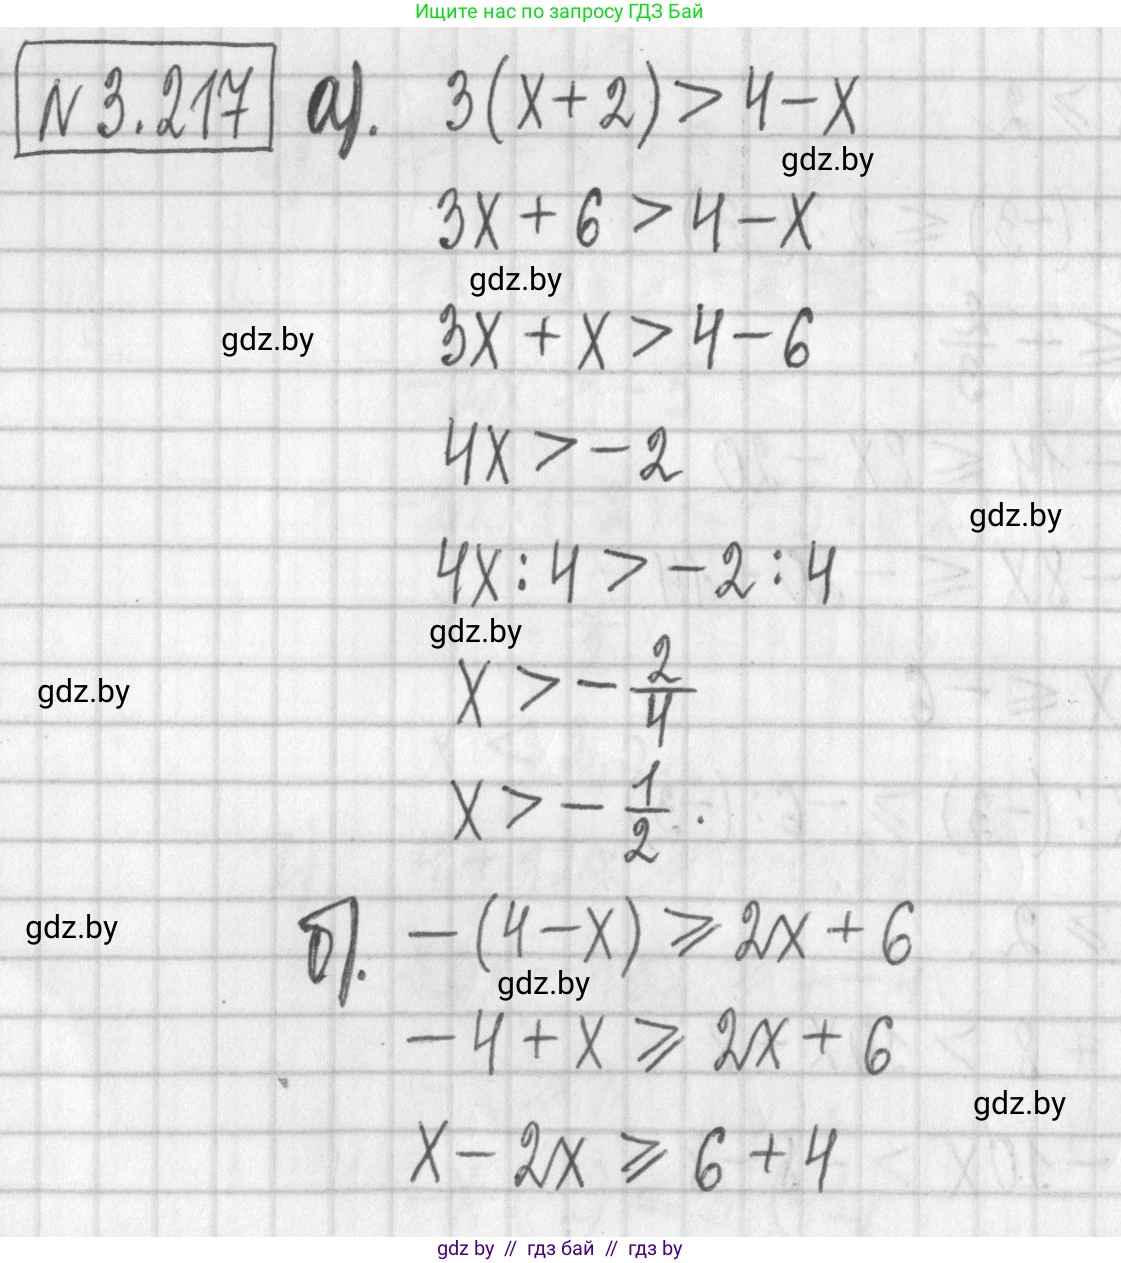 Ищите нас по запросу ГДЗ Бай
N 3.217 а). 3(x+2) > 4-x
gdz.by
3x + 6 > 4 - x
gdz.by
gdz.by
3x + x > 4 - 6
4x > - 2
gdz.by
4x : 4 > - 2 : 4
gdz.by
gdz.by
x > - 2/4
x > - 1/2 .
gdz.by
б). - (4 - x) ⩾ 2x + 6
gdz.by
- 4 + x ⩾ 2x + 6
gdz.by
x - 2x ⩾ 6 + 4
gdz by // гдз бай // гдз by